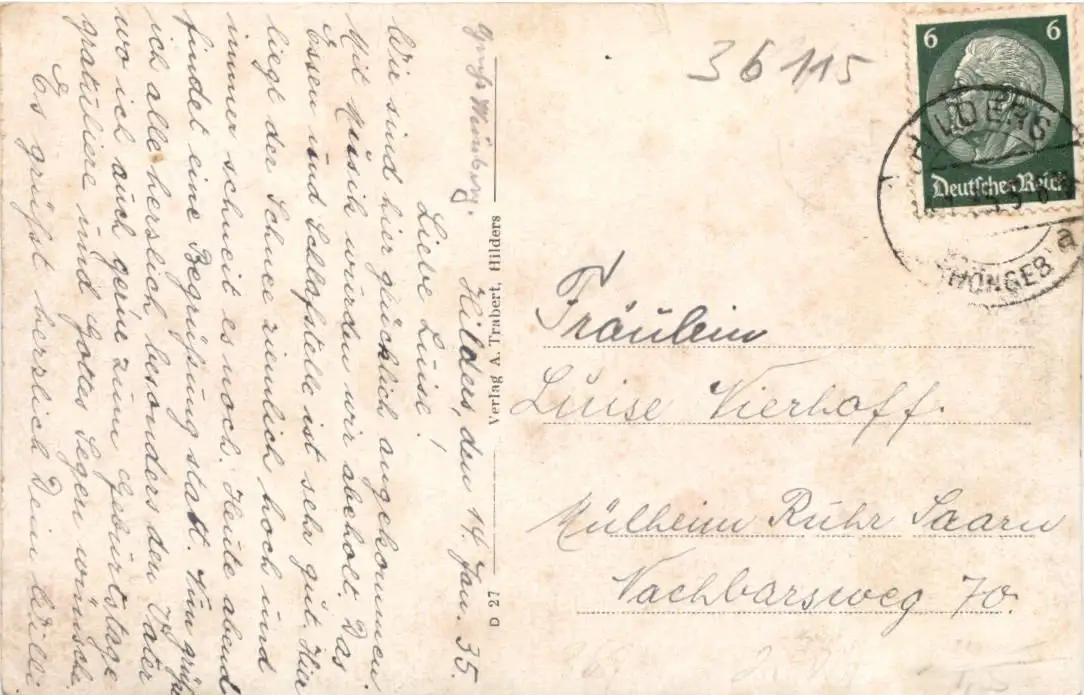 Hilders, den 14 Jan. 35.
Liebe Luise!
Wir sind hier glücklich angekommen
Mit Musik wurden wir abeholt, Das
Essen und Schlafstelle ist sehr gut, Hier
liegt der Schnee ziemlich hoch und
immer schneit es noch. Heute abend
findet eine Begrüßung statt. Nun grüß
ich alle herslich besonders den Vater
wo ich auch gerne zum Geburtstage
gratuliere und Gottes Segen wünsche.
Es grüßt herzlich Dein Willi
Gruß
Verlag A. Trabert, Hilders
D 27
36 115
6 6
Deutsches Reich
HILDERS
a
Fräulein
Luise Vierhoff.
Mülheim Ruhr Saarn
Nachbarsweg 70.